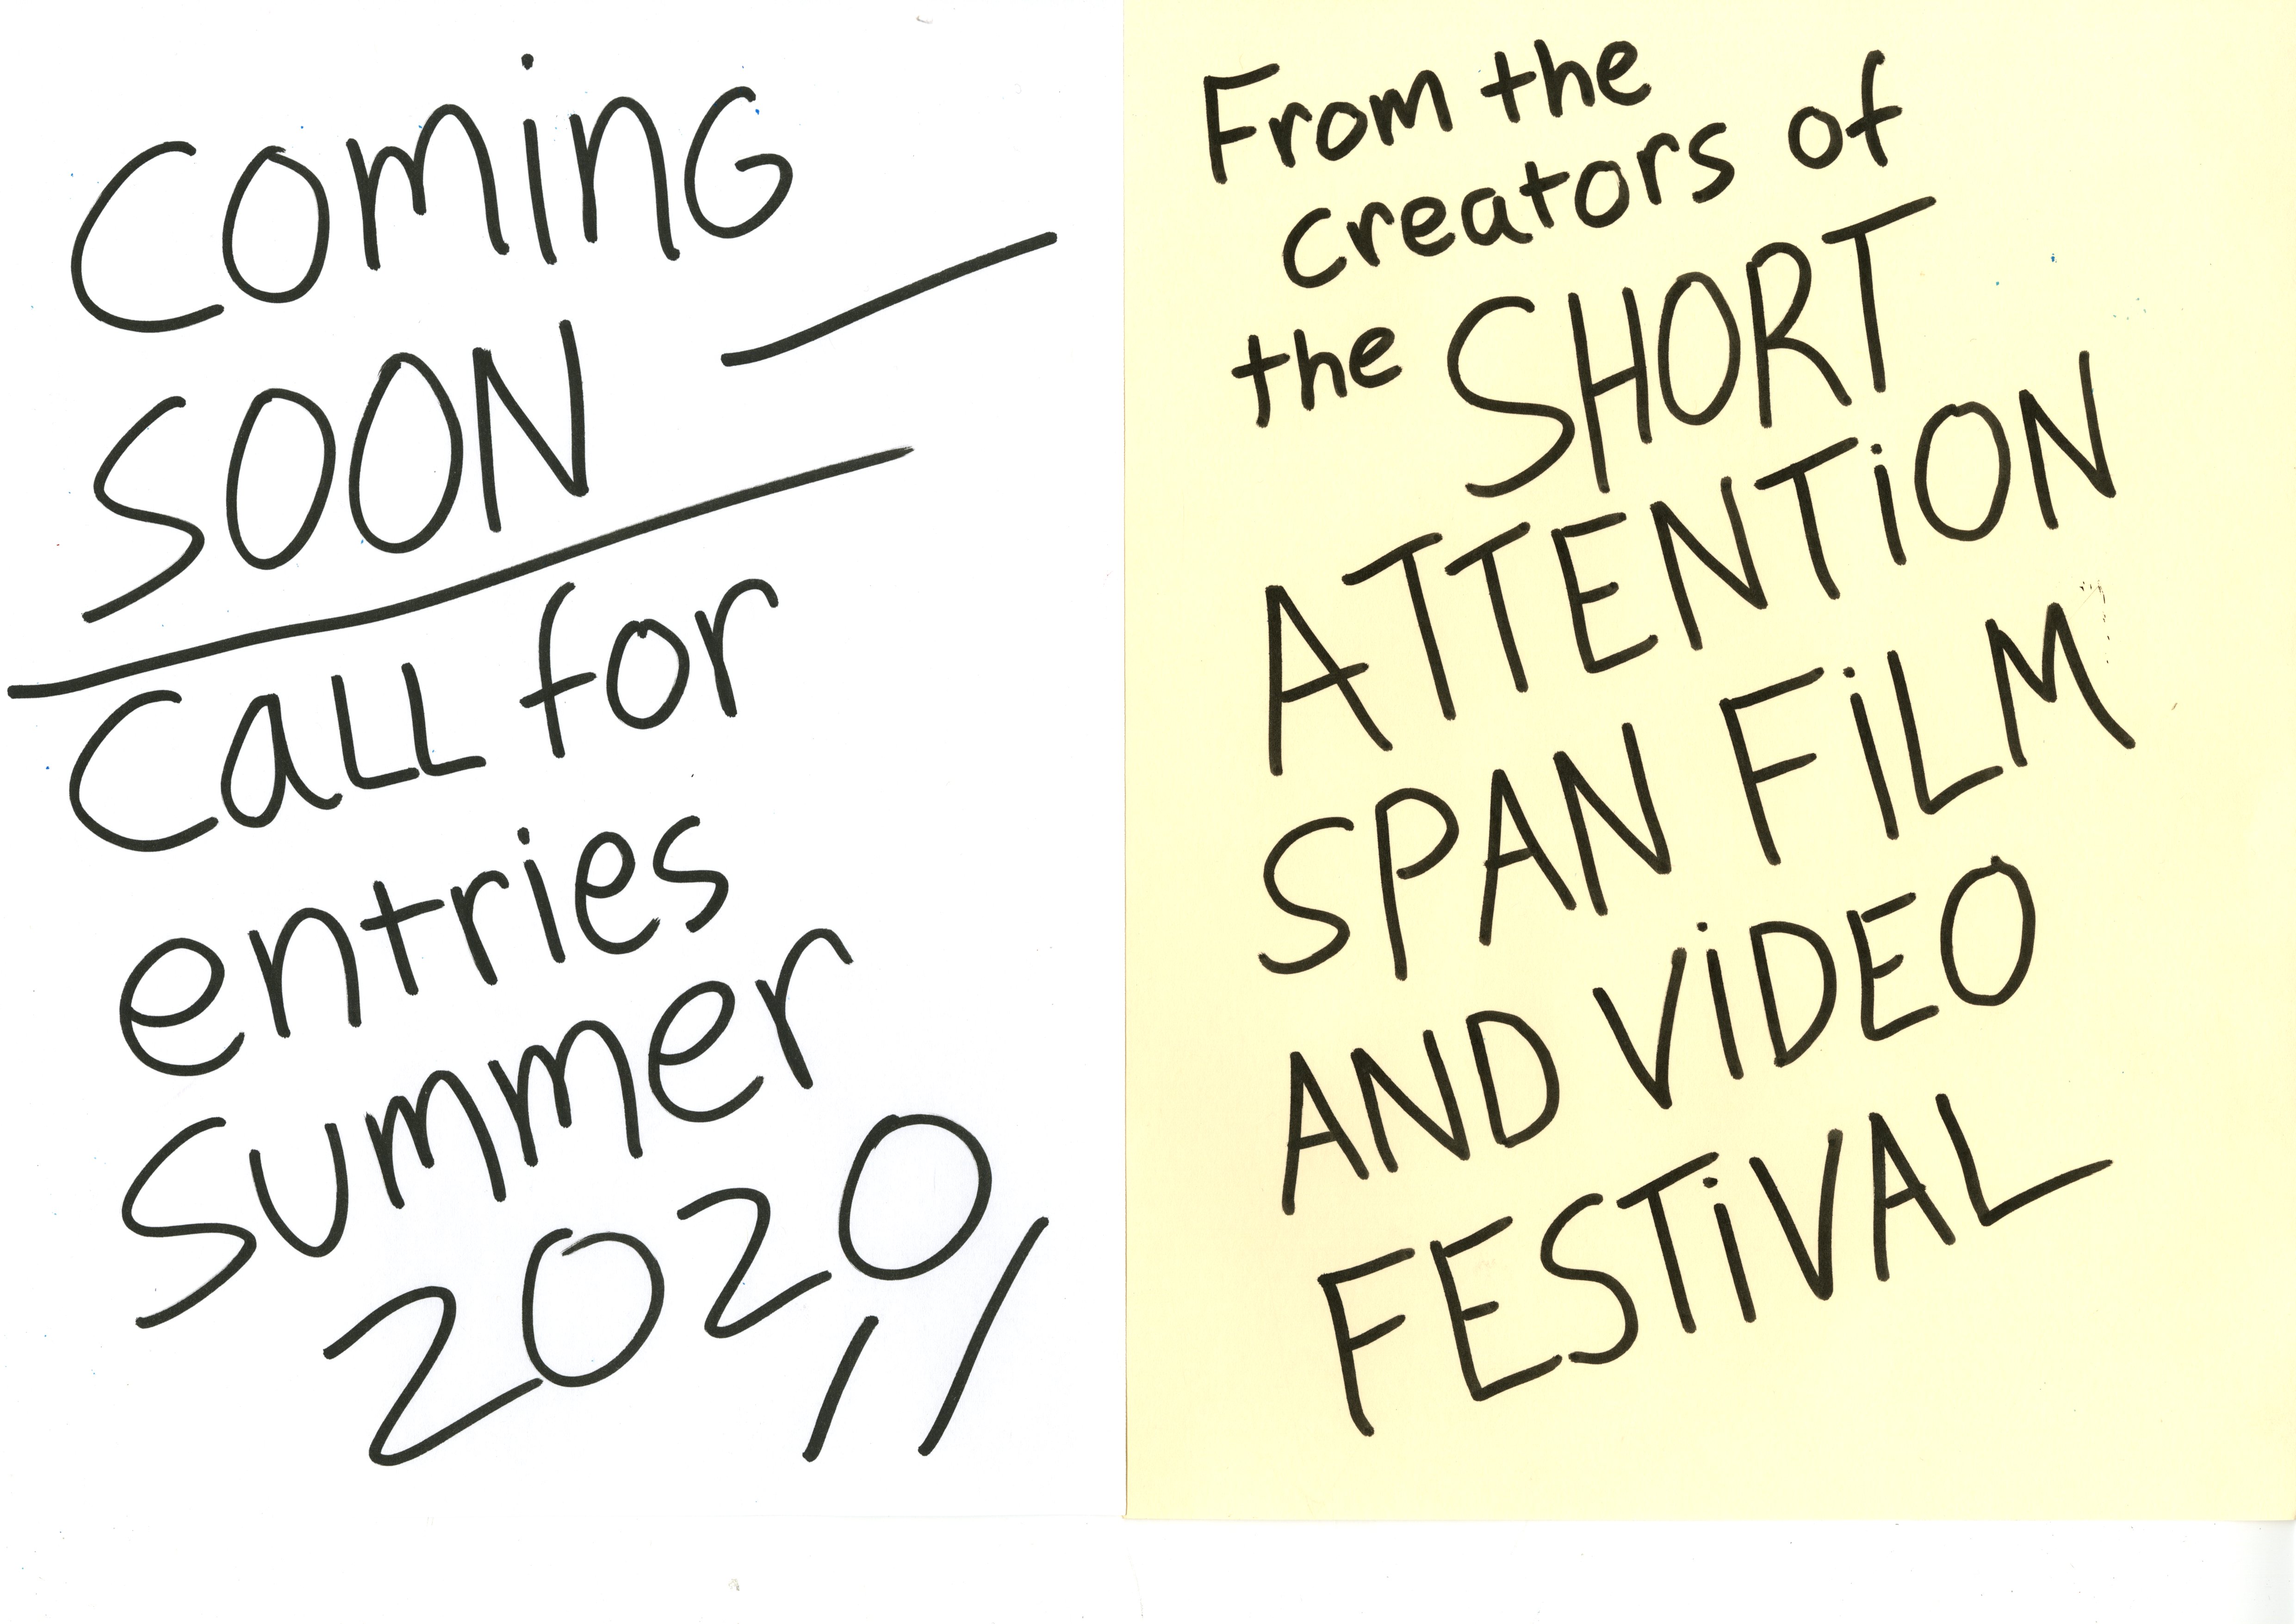 COMiNG
SOON —
Call for
entries
Summer
2020 //
From the
creators of
the SHORT
ATTENTiON
SPAN FiLM
AND ViDEO
FESTiVAL